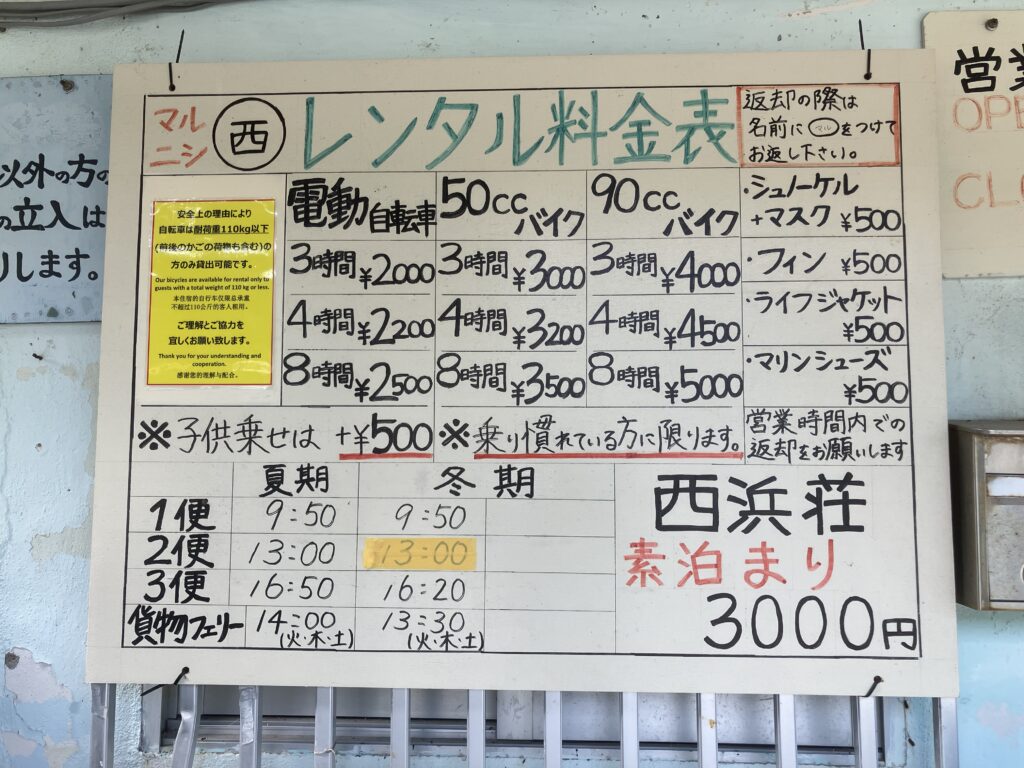 以外の方の
の立入は
りします。
営業
OPE
CLO
マル
ニシ
西
レンタル料金表
返却の際は
名前に マル をつけて
お返し下さい。
安全上の理由により
自転車は耐荷重110kg以下
(前後のかごの荷物も含む)の
方のみ貸出可能です。
Our bicycles are available for rental only to
guests with a total weight of 110 kg or less.
本住宿的自行车仅限总承重
不超过110公斤的客人租用。
ご理解とご協力を
宜しくお願い致します。
Thank you for your understanding and
cooperation.
感谢您的理解与配合。
電動自転車 50ccバイク 90ccバイク
3時間 ¥2000 3時間 ¥3000 3時間 ¥4000
4時間 ¥2200 4時間 ¥3200 4時間 ¥4500
8時間 ¥2500 8時間 ¥3500 8時間 ¥5000
・シュノーケル
+マスク ¥500
・フィン ¥500
・ライフジャケット
¥500
・マリンシューズ
¥500
※子供乗せは +¥500 ※乗り慣れている方に限ります。
営業時間内での
返却をお願いします
夏期 冬期
1便 9:50 9:50
2便 13:00 13:00
3便 16:50 16:20
貨物フェリー 14:00 (火・木・土) 13:30 (火・木・土)
西浜荘
素泊まり
3000円